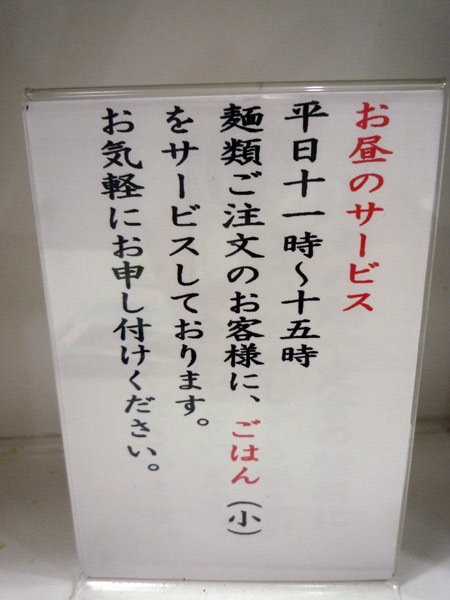 お昼のサービス
平日十一時～十五時
麺類ご注文のお客様に、ごはん（小）
をサービスしております。
お気軽にお申し付けください。